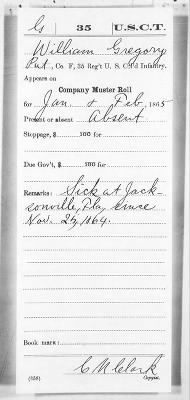 G 35 U.S.C.T.
William Gregory
Pvt, Co. F, 35 Reg't U. S. Col'd Infantry.
Appears on
Company Muster Roll
for Jan. & Feb, 1865
Present or absent Absent
Stoppage, $ 100 for
Due Gov't, $ 100 for
Remarks: Sick at Jack-
sonville, Fla, since
Nov. 25, 1864.
Book mark:
C N Clark
(358) Copyist.